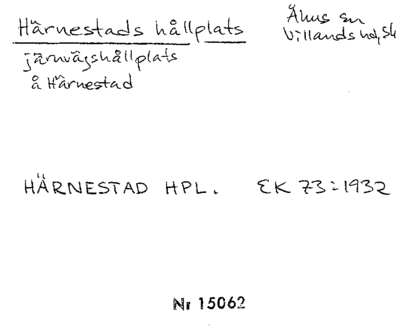 Härnestads hållplats
järnvägshållplats
å Härnestad
Åhus sn
Villands hd, Sk
HÄRNESTAD HPL. EK 73:1932
Nr 15062